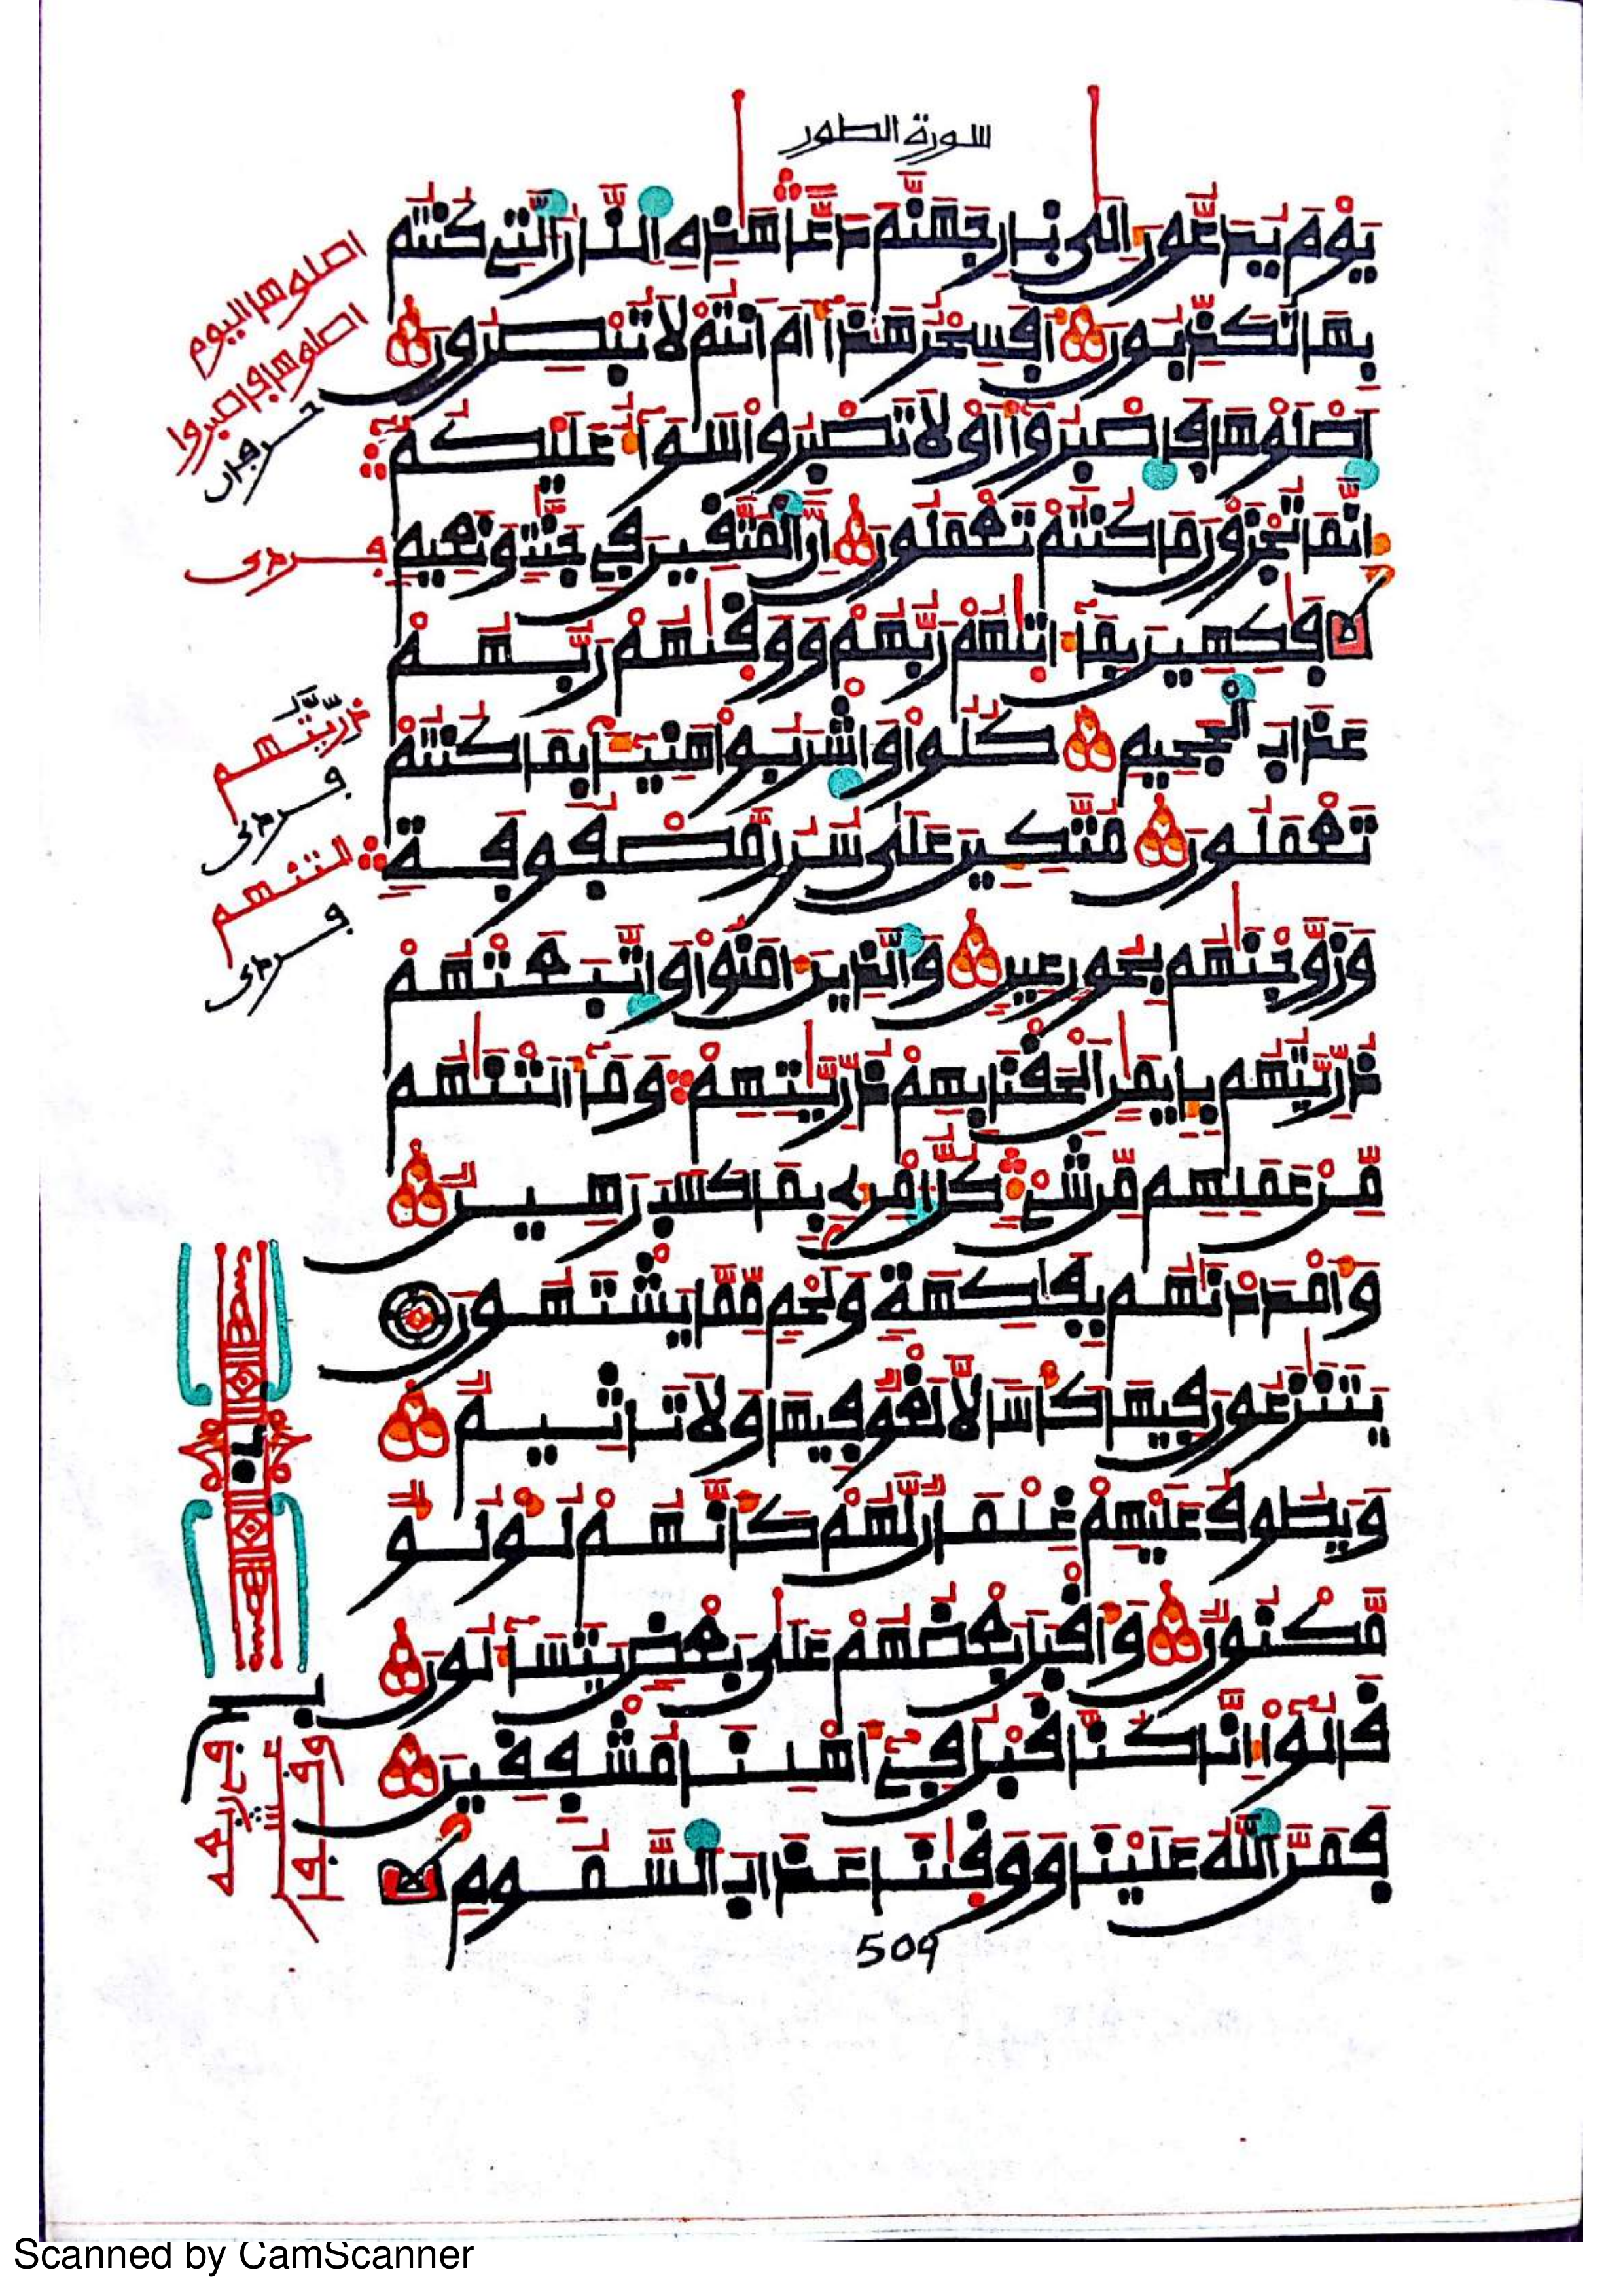 سورة الطور
يَوْمَ يُدَعُّونَ إِلَىٰ نَارِ جَهَنَّمَ دَعًّا هَٰذِهِ النَّارُ الَّتِي كُنتُم
بِهَا تُكَذِّبُونَ أَفَسِحْرٌ هَٰذَا أَمْ أَنتُمْ لَا تُبْصِرُونَ
اصْلَوْهَا فَاصْبِرُوا أَوْ لَا تَصْبِرُوا سَوَاءٌ عَلَيْكُمْ
إِنَّمَا تُجْزَوْنَ مَا كُنتُمْ تَعْمَلُونَ إِنَّ الْمُتَّقِينَ فِي جَنَّٰتٍ وَنَعِيمٍ
فَٰكِهِينَ بِمَا ءَاتَىٰهُمْ رَبُّهُمْ وَوَقَىٰهُمْ رَبُّهُمْ
عَذَابَ الْجَحِيمِ كُلُوا وَاشْرَبُوا هَنِيئًا بِمَا كُنتُمْ
تَعْمَلُونَ مُتَّكِئِينَ عَلَىٰ سُرُرٍ مَّصْفُوفَةٍ
وَزَوَّجْنَٰهُم بِحُورٍ عِينٍ وَالَّذِينَ ءَامَنُوا وَاتَّبَعَتْهُمْ
ذُرِّيَّتُهُم بِإِيمَٰنٍ أَلْحَقْنَا بِهِمْ ذُرِّيَّٰتِهِمْ وَمَا أَلَتْنَٰهُم
مِّنْ عَمَلِهِم مِّن شَيْءٍ كُلُّ امْرِئٍ بِمَا كَسَبَ رَهِينٌ
وَأَمْدَدْنَٰهُم بِفَٰكِهَةٍ وَلَحْمٍ مِّمَّا يَشْتَهُونَ
يَتَنَٰزَعُونَ فِيهَا كَأْسًا لَّا لَغْوٌ فِيهَا وَلَا تَأْثِيمٌ
وَيَطُوفُ عَلَيْهِمْ غِلْمَانٌ لَّهُمْ كَأَنَّهُمْ لُؤْلُؤٌ
مَّكْنُونٌ وَأَقْبَلَ بَعْضُهُمْ عَلَىٰ بَعْضٍ يَتَسَاءَلُونَ
قَالُوا إِنَّا كُنَّا قَبْلُ فِي أَهْلِنَا مُشْفِقِينَ
فَمَنَّ اللَّهُ عَلَيْنَا وَوَقَىٰنَا عَذَابَ السَّمُومِ
509
اصلوها اليوم
اصلوها فاصبروا
حرفان
فردى
ذُرِّيَّتُهم
فردى
التنهم
فردى
Scanned by CamScanner